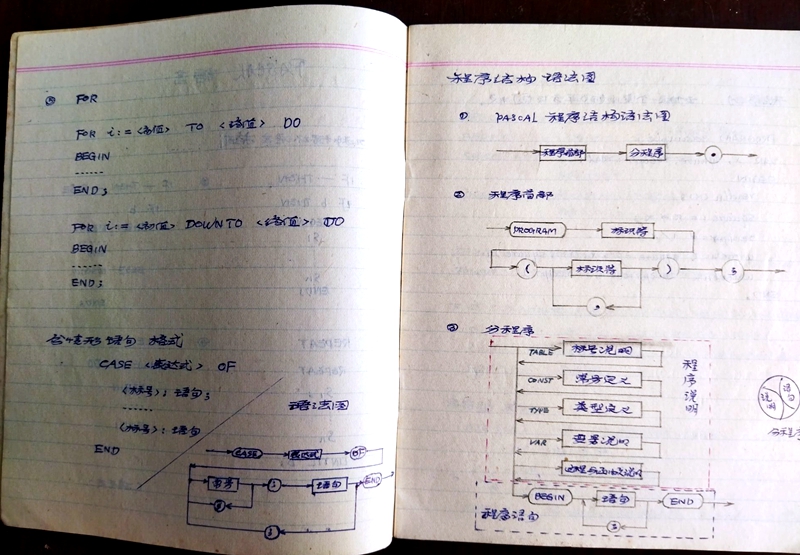 ③ FOR
FOR i:= <初值> TO <终值> DO
BEGIN
------
END;
FOR i:= <初值> DOWNTO <终值> DO
BEGIN
------
END;
分情形语句 格式
CASE <表达式> OF
<标号>: 语句;
------
<标号>: 语句
END
语法图
CASE 表达式 OF
常量 : 语句 END
,
;
程序结构 语法图
① PASCAL 程序结构语法图
程序首部 分程序 .
② 程序首部
PROGRAM 标识符
( 标识符 ) ;
,
③ 分程序
TABLE 标号说明
CONST 常量定义
TYPE 类型定义
VAR 变量说明
过程与函数说明
程序说明
BEGIN 语句 END
;
程序语句
说明
语句
分程序